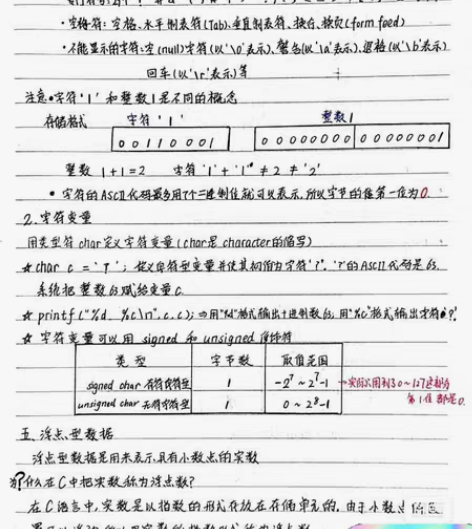 ·空格符:空格、水平制表符(Tab)、垂直制表符、换行、换页(form feed)
·不能显示的字符:空(null)字符(以'\0'表示)、警告(以'\a'表示)、退格(以'\b'表示)
回车(以'\r'表示)等
注意·字符'1'和整数1是不同的概念
存储格式 字符'1' 整数1
00110001 00000000 00000001
整数 1+1=2 字符'1'+'1'≠2≠'2'
·字符的ASCII代码最多用7个二进制位就可以表示,所以字节的值第一位为0.
2.字符变量
用类型符char定义字符变量(char是character的缩写)
☆char c='?';定义字符型变量并使其初值为字符'?'.'?'的ASCII代码是63
系统把整数63赋给变量c.
☆printf("%d %c\n",c,c);⇒用"%d"格式输出十进制数63,用"%c"格式输出字符?
☆字符变量可以用 signed 和 unsigned 修饰符
类型 字节数 取值范围
signed char 有符号字符型 1 -2⁷~2⁷-1 →实际只用到0~127这部分
unsigned char 无符号字符型 1 0~2⁸-1 第1位都是0
五、浮点型数据
浮点型数据是用来表示具有小数点的实数
为什么在C中把实数称为浮点数?
在C语言中,实数是以指数的形式存放在存储单元的.由于小数点